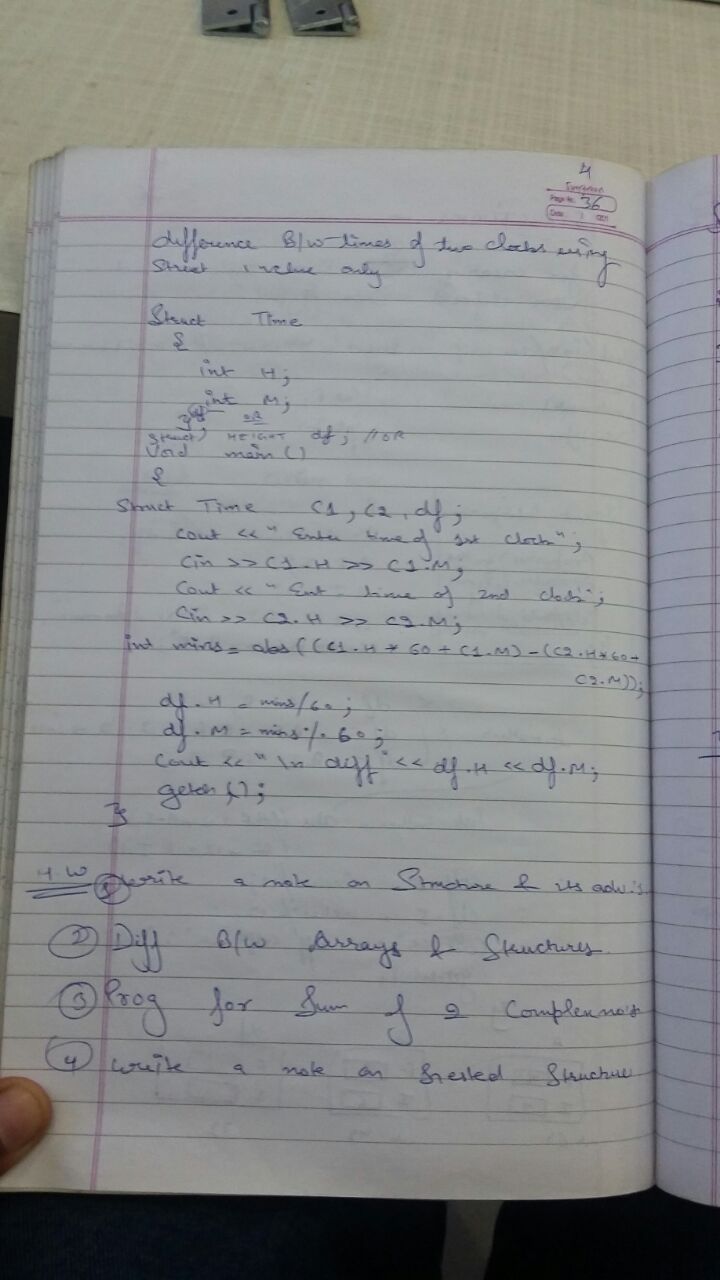 4
Evergreen
Page No. 36
Date: / 201
difference B/w times of two clocks using
Struct value only
Struct Time
{
int H;
int M;
} df; OR
Struct HEIGHT df; // OR
Void main ()
{
Struct Time C1, C2, df;
Cout << " Enter time of 1st clock";
Cin >> C1.H >> C1.M;
Cout << " Ent time of 2nd clock";
Cin >> C2.H >> C2.M;
int mins = abs((C1.H * 60 + C1.M) - (C2.H*60+
C2.M));
df.H = mins/60;
df.M = mins % 60;
Cout << " \n diff" << df.H << df.M;
getch();
}
H.W ① Write a note on Structure & its adv.s
② Diff B/W Arrays & Structures
③ Prog for Sum of 2 Complex no's
④ Write a note on Nested Structure